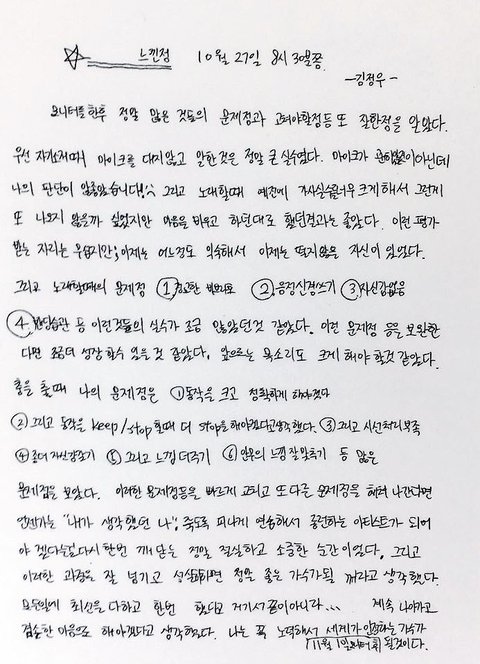 느낀점 10월 27일 8시 30분쯤
-김정우-
모니터를 한후 정말 많은 것들의 문제점과 고쳐야할점등 또 잘한점을 알았다.
우선 자기소개때, 마이크를 대지않고 말한것은 정말 큰 실수였다. 마이크가 아닌데
나의 판단이 안좋았습니다!^^; 그리고 노래할때 예전에 자신실수를너무크게해서 그런게
또 나오지 않을까 싶었지만 마음을 비우고 하던대로 했던결과는 좋았다. 이런 평가
받는 자리는 무섭지만; 이제는 어느정도 익숙해서 이제는 떨지않을 자신이 있었다.
그리고 노래할때의 문제점 ① ② 음정신경쓰기 ③ 자신감없음
④ 습관 등 이런것들의 실수가 조금 있었던것 같았다. 이런 문제점 등을 보완한
다면 조금더 성장 할수 있을 것 같았다. 앞으로는 목소리도 크게 해야 할것 같았다.
춤을 출때 나의 문제점은 ① 동작을 크고 정확하게 해야겠다
② 그리고 동작을 keep/stop 할때 더 stop을 해야겠다고생각했다. ③ 그리고 시선처리 부족
④ 좀더 자신감갖기 ⑤ 그리고 느낌더주기 ⑥ 안무의 느낌 잘맞추기 등 많은
문제점을 보았다. 이러한 문제점등을 빠르게 고치고 또 다른 문제점을 해쳐 나간다면
언젠가는 "내가 생각했던 나"; 죽도록 피나게 연습해서 공연하는 아티스트가 되어
야 겠다는걸 다시 한번 깨닫는 정말 절실하고 소중한 순간이었다. 그리고
이러한 과정을 잘 넘기고 성실하다면 정말 좋은 가수가될 꺼라고 생각했다.
모든일에 최선을 다하고 한번 했다고 거기서 끝이아니라... 계속 나아가고
겸손한 마음으로 해야겠다고 생각했다. 나는 꼭 노력해서 세계가 인정하는 가수가
될것이다.